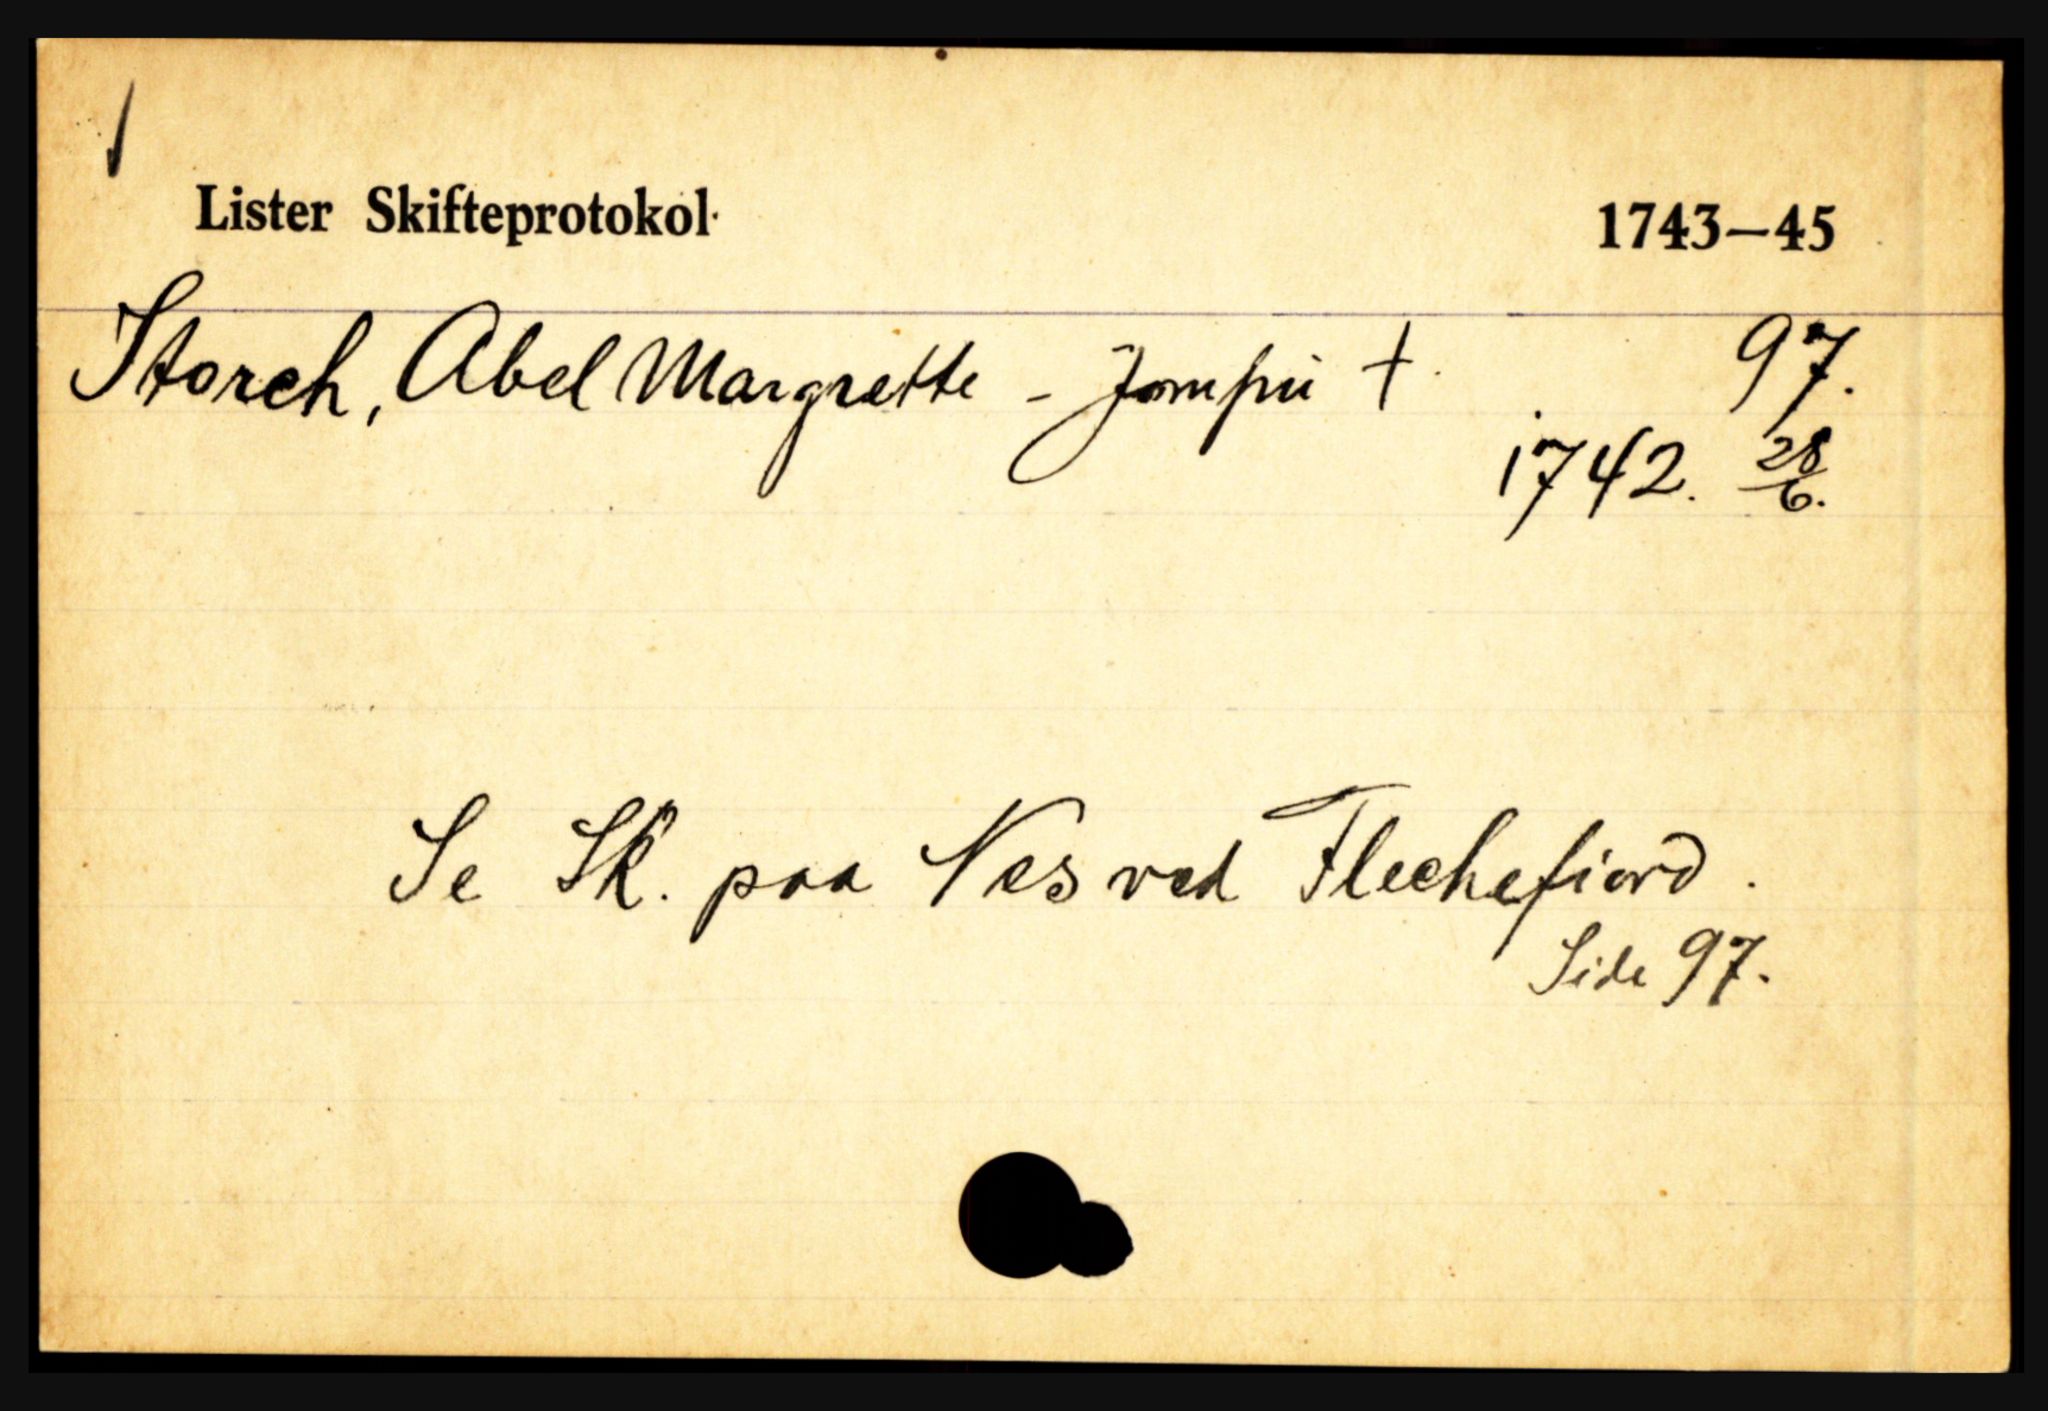 Lister Skifteprotokol 1743–45
Storch, Abel Margrette - Jomfru † 97.
1742. 28/6.
Se Sk. paa Nes ved Flechefiord.
Side 97.